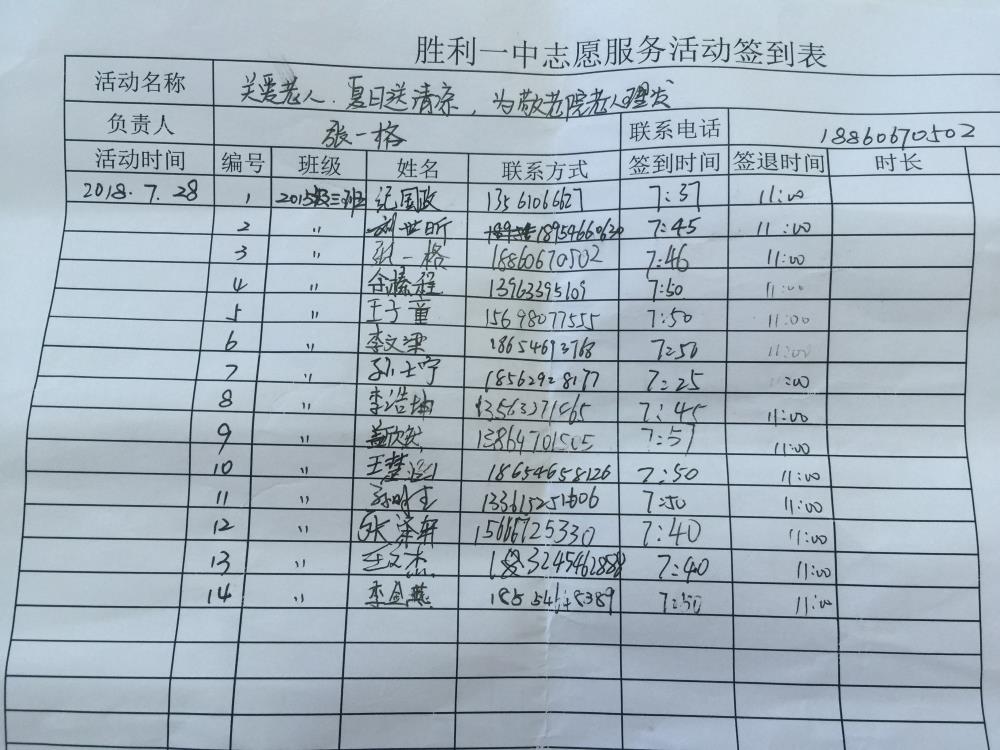 胜利一中志愿服务活动签到表
活动名称 关爱老人.夏日送清凉,为敬老院老人理发
负责人 张一格 联系电话 18860670502
活动时间 编号 班级 姓名 联系方式 签到时间 签退时间 时长
2018.7.28 1 2015级三班 纪国政 13561066627 7:37 11:00
2 〃 刘世昕 18954660630 7:45 11:00
3 〃 张一格 18860670502 7:46 11:00
4 〃 13963395109 7:50 11:00
5 〃 王子童 15698077555 7:50 11:00
6 〃 李文梁 18654693768 7:50 11:00
7 〃 孙士宁 18562928177 7:25 :00
8 〃 李浩坤 13563271465 7:45 11:00
9 〃 盖欣 13864701505 7:57 11:00
10 〃 王楚 18654658126 7:50 11:00
11 〃 孙明 7:50 11:00
12 〃 张泽轩 15666725330 7:40 11:00
13 〃 王文杰 7:40 11:00
14 〃 李金燕 18554648389 7:50 11:00